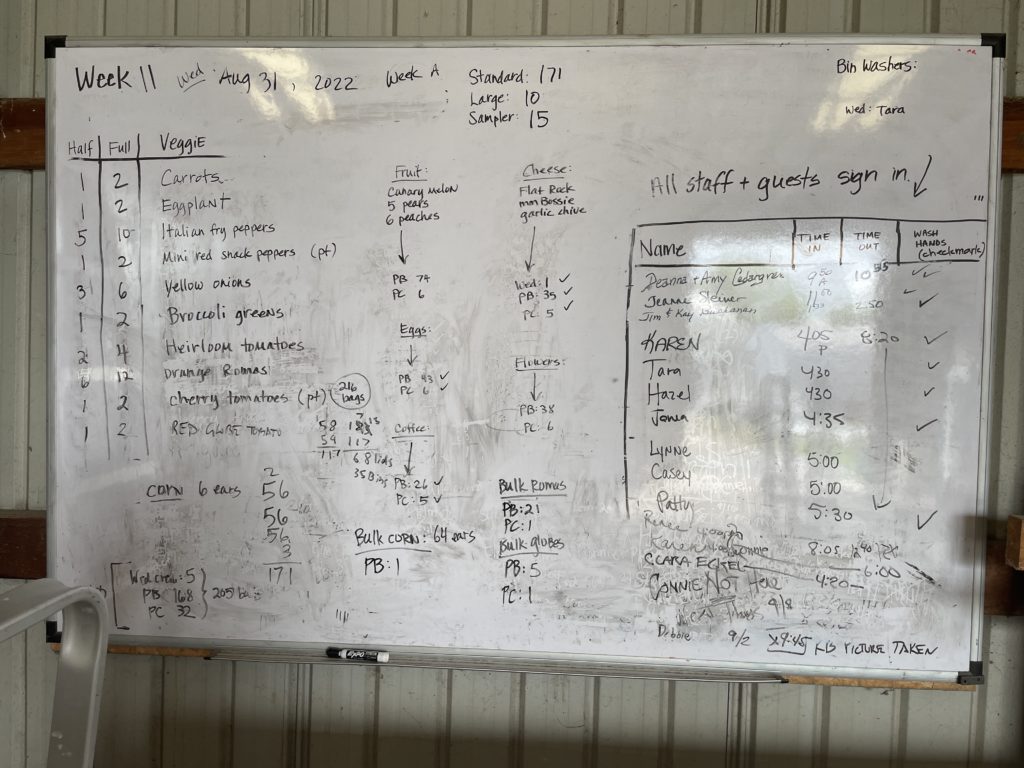 Week 11 Wed Aug 31, 2022 Week A
Standard: 171
Large: 10
Sampler: 15
Bin Washers:
Wed: Tara
Half Full Veggie
1 2 Carrots
1 2 Eggplant
5 10 Italian fry peppers
1 2 Mini red snack peppers (pt)
3 6 Yellow onions
1 2 Broccoli greens
2 4 Heirloom tomatoes
6 12 Orange Romas
1 2 Cherry tomatoes (pt) 216 bags
1 2 RED GLOBE TOMATO
58
59 117
117
68 lids
35 Bins
CORN 6 ears
2
56
56
56
3
171
Wed crew: 5
PB 168
PC 32
205
Fruit:
Canary melon
5 pears
6 peaches
PB 74
PC 6
Eggs:
PB 43 ✓
PC 6 ✓
Coffee:
PB: 26 ✓
PC: 5 ✓
Bulk CORN: 64 ears
PB: 1
Cheese:
Flat Rock
mm Bossie
garlic chive
Wed: 1 ✓
PB: 35 ✓
PC: 5 ✓
Flowers:
PB: 38
PC: 6
Bulk Romas
PB: 21
PC: 1
Bulk globes
PB: 5
PC: 1
All staff + guests sign in.
Name TIME IN TIME OUT WASH HANDS (checkmark)
Deanna + Amy 9 10 35 ✓
Jeanne 11 ✓
Jim & Kay Buchanan 2:50 ✓
KAREN 405 P 8:20 ✓
Tara 430 ✓
Hazel 430 ✓
Jowa 4:35 ✓
Lynne
Casey 5:00
5:00
Patty 5:30 ✓
Renee
Karen 8:05
CLARA 6:00
CONNIE NOT Here 4:20
9/8
9/2 9:45 KIDS PICTURE TAKEN
EXPO